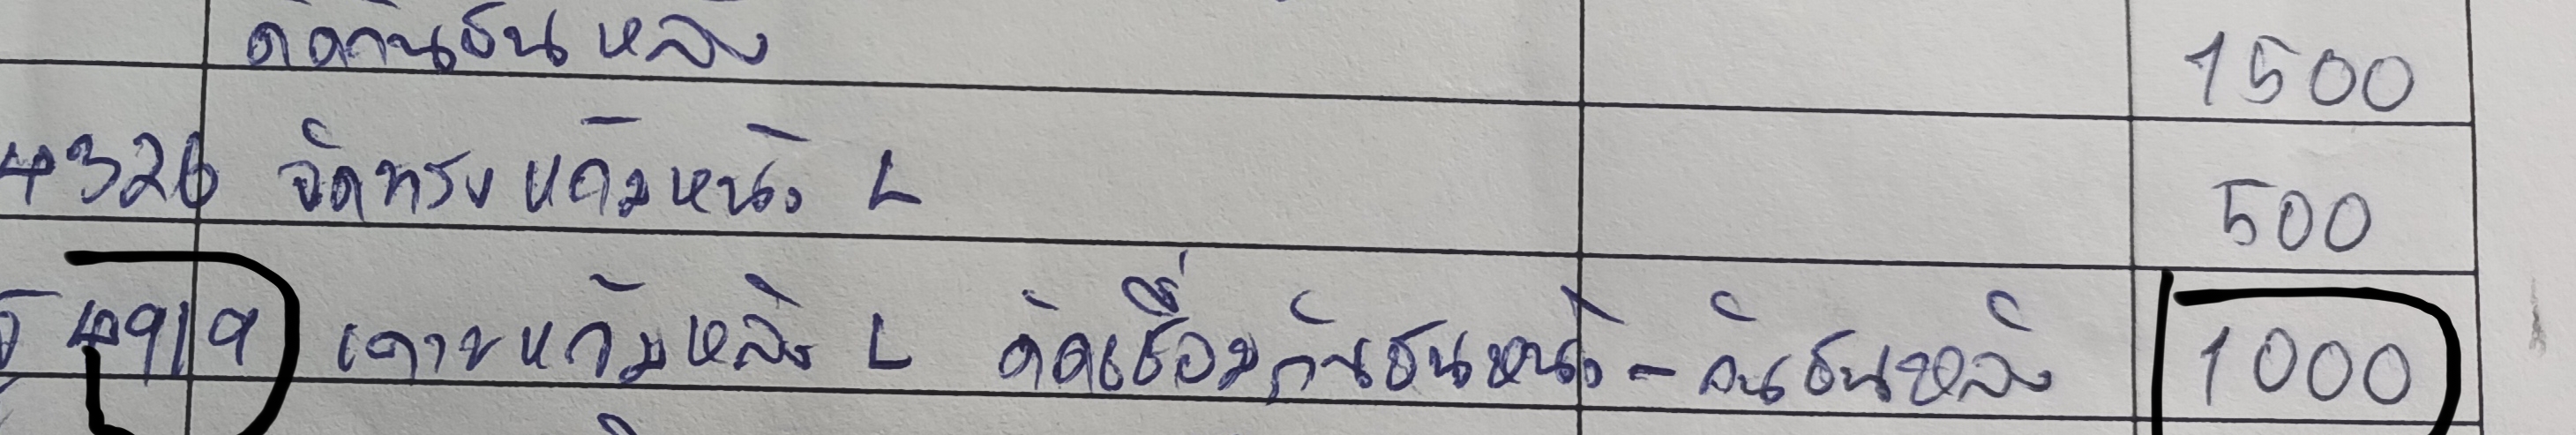 ดัดกันชนหลัง 1500
4326 จัดทรงแก้มหน้า L 500
4919 เคาะแก้มหลัง L ดัดเชื่อมกันชนหน้า - กันชนหลัง 1000